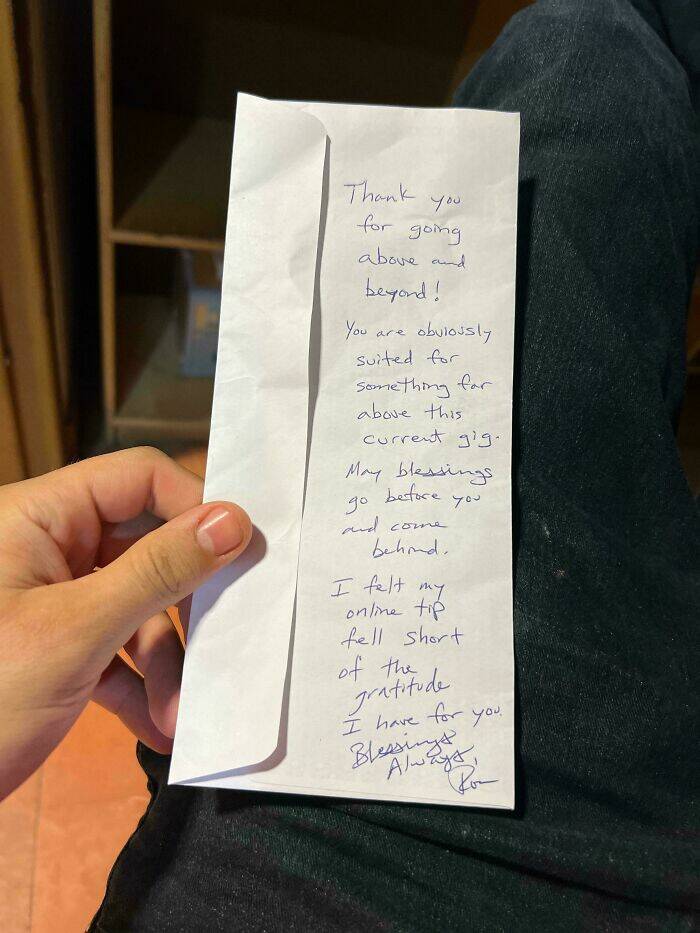 Thank you
for going
above and
beyond!
You are obviously
suited for
something far
above this
current gig.
May blessings
go before you
and come
behind.
I felt my
online tip
fell short
of the
gratitude
I have for you.
Blessings
Always,
Ron